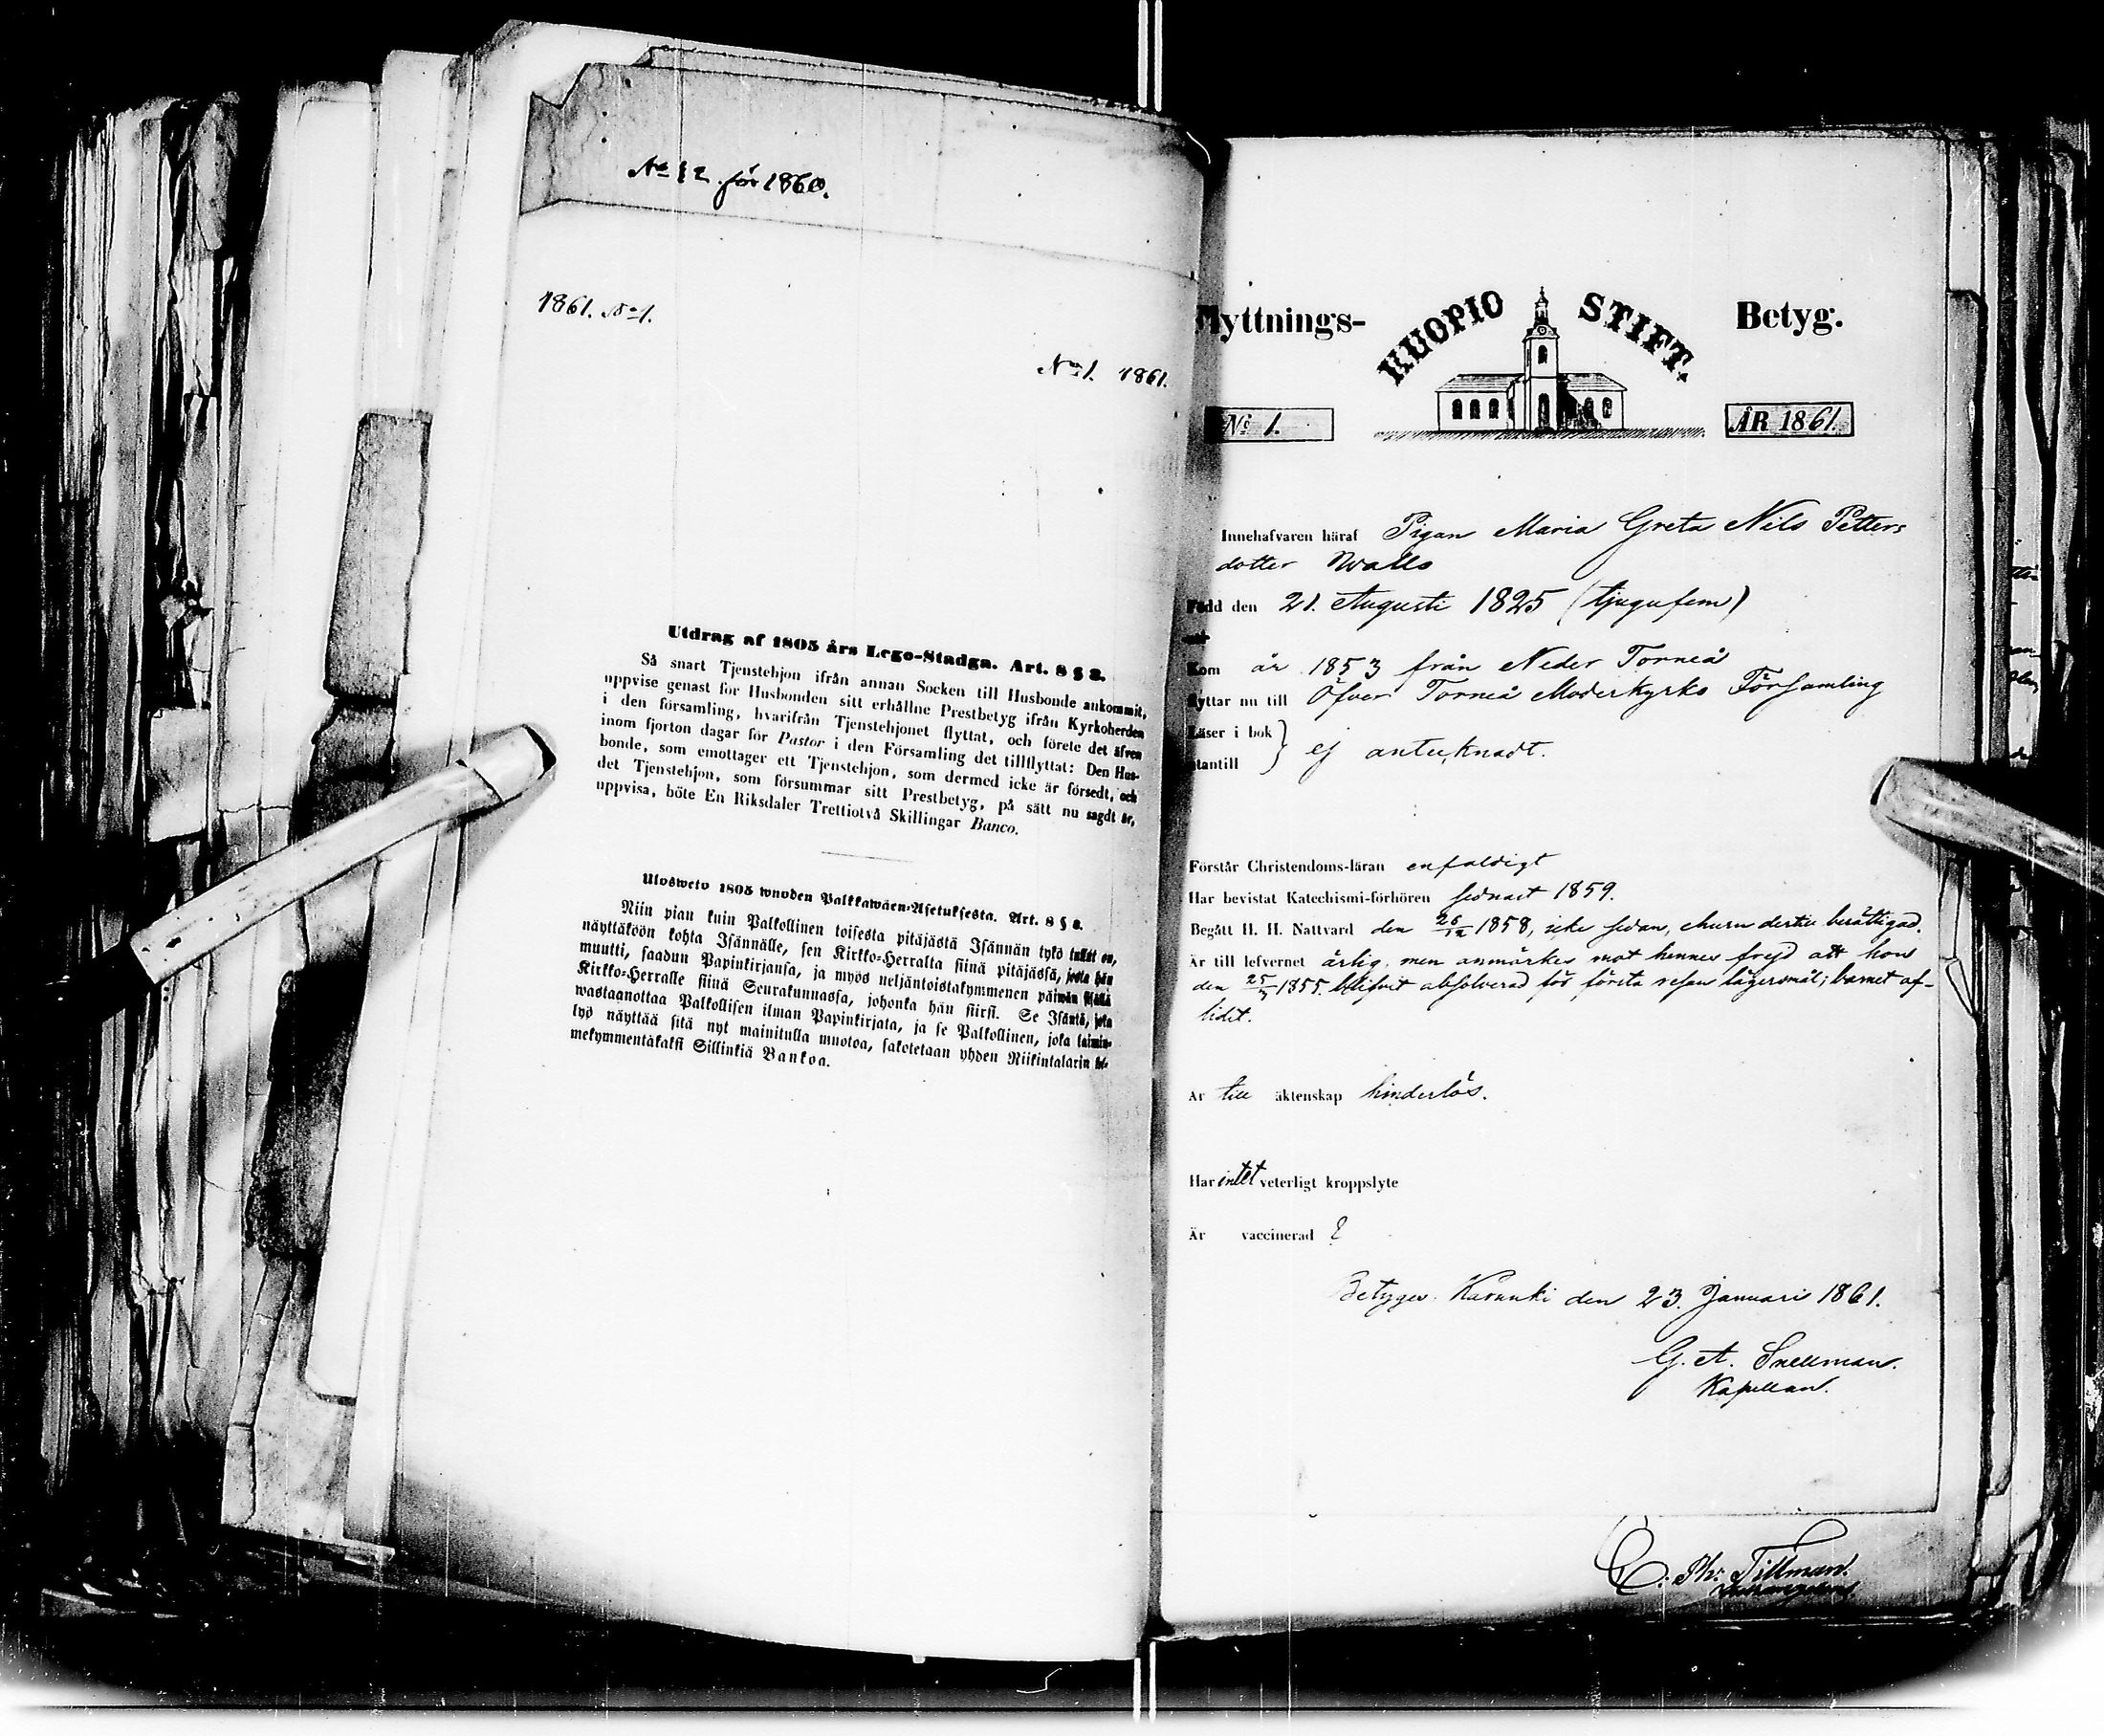 No 12 för 1860.
1861. No 1.
No 1. 1861.
Utdrag af 1805 års Lego-Stadga. Art. 8 § 8.
Så snart Tjenstehjon ifrån annan Socken till Husbonde ankommit,
uppvise genast för Husbonden sitt erhållne Prestbetyg ifrån Kyrkoherden
i den församling, hvarifrån Tjenstehjonet flyttat, och förete det äfven
inom fjorton dagar för Pastor i den Församling det tillflyttat: Den Hus-
bonde, som emottager ett Tjenstehjon, som dermed icke är försedt, och
det Tjenstehjon, som försummar sitt Prestbetyg, på sätt nu sagdt är,
uppvisa, böte En Riksdaler Trettiotvå Skillingar Banco.
Ulosweto 1805 wuoden Palkkawäen-Asetuksesta. Art. 8 § 8.
Niin pian kuin Palkollinen toisesta pitäjästä Isännän tykö tullut on,
näyttäköön kohta Isännälle, sen Kirkko-Herralta siinä pitäjässä, josta hän
muutti, saadun Papinkirjansa, ja myös neljäntoistakymmenen päiwän sisällä
Kirkko-Herralle siinä Seurakunnassa, johonka hän siirsi. Se Isäntä, joka
wastaanottaa Palkollisen ilman Papinkirjata, ja se Palkollinen, joka laimin-
lyö näyttää sitä nyt mainitulla muotoa, sakotetaan yhden Riikintalarin kol-
mekymmentäkaksi Sillinkiä Bankoa.
Flyttnings- KUOPIO STIFT. Betyg.
No 1. ÅR 1861.
Innehafvaren häraf Pigan Maria Greta Nils Petters
dotter Walls
Född den 21. Augusti 1825 (tjugufem)
Kom år 1853 från Neder Torneå
flyttar nu till Öfver Torneå Moderkyrko Församling
Läser i bok } ej antecknadt.
utantill
Förstår Christendoms-läran enfaldigt
Har bevistat Katechismi-förhören sednast 1859.
Begått H. H. Nattvard den 26/12 1858, icke sedan, ehuru dertill berättigad.
Är till lefvernet ärlig, men anmärkes mot hennes frejd att hon
den 25/3 1855. blifvit absolverad för första resan lägersmål; barnet af-
lidit.
Är till äktenskap hinderlös.
Har intet veterligt kroppslyte
Är vaccinerad ?
Betygar. Karunki den 23. Januari 1861.
G. A. Snellman.
Kapellan.
C. Ph: Tillman.